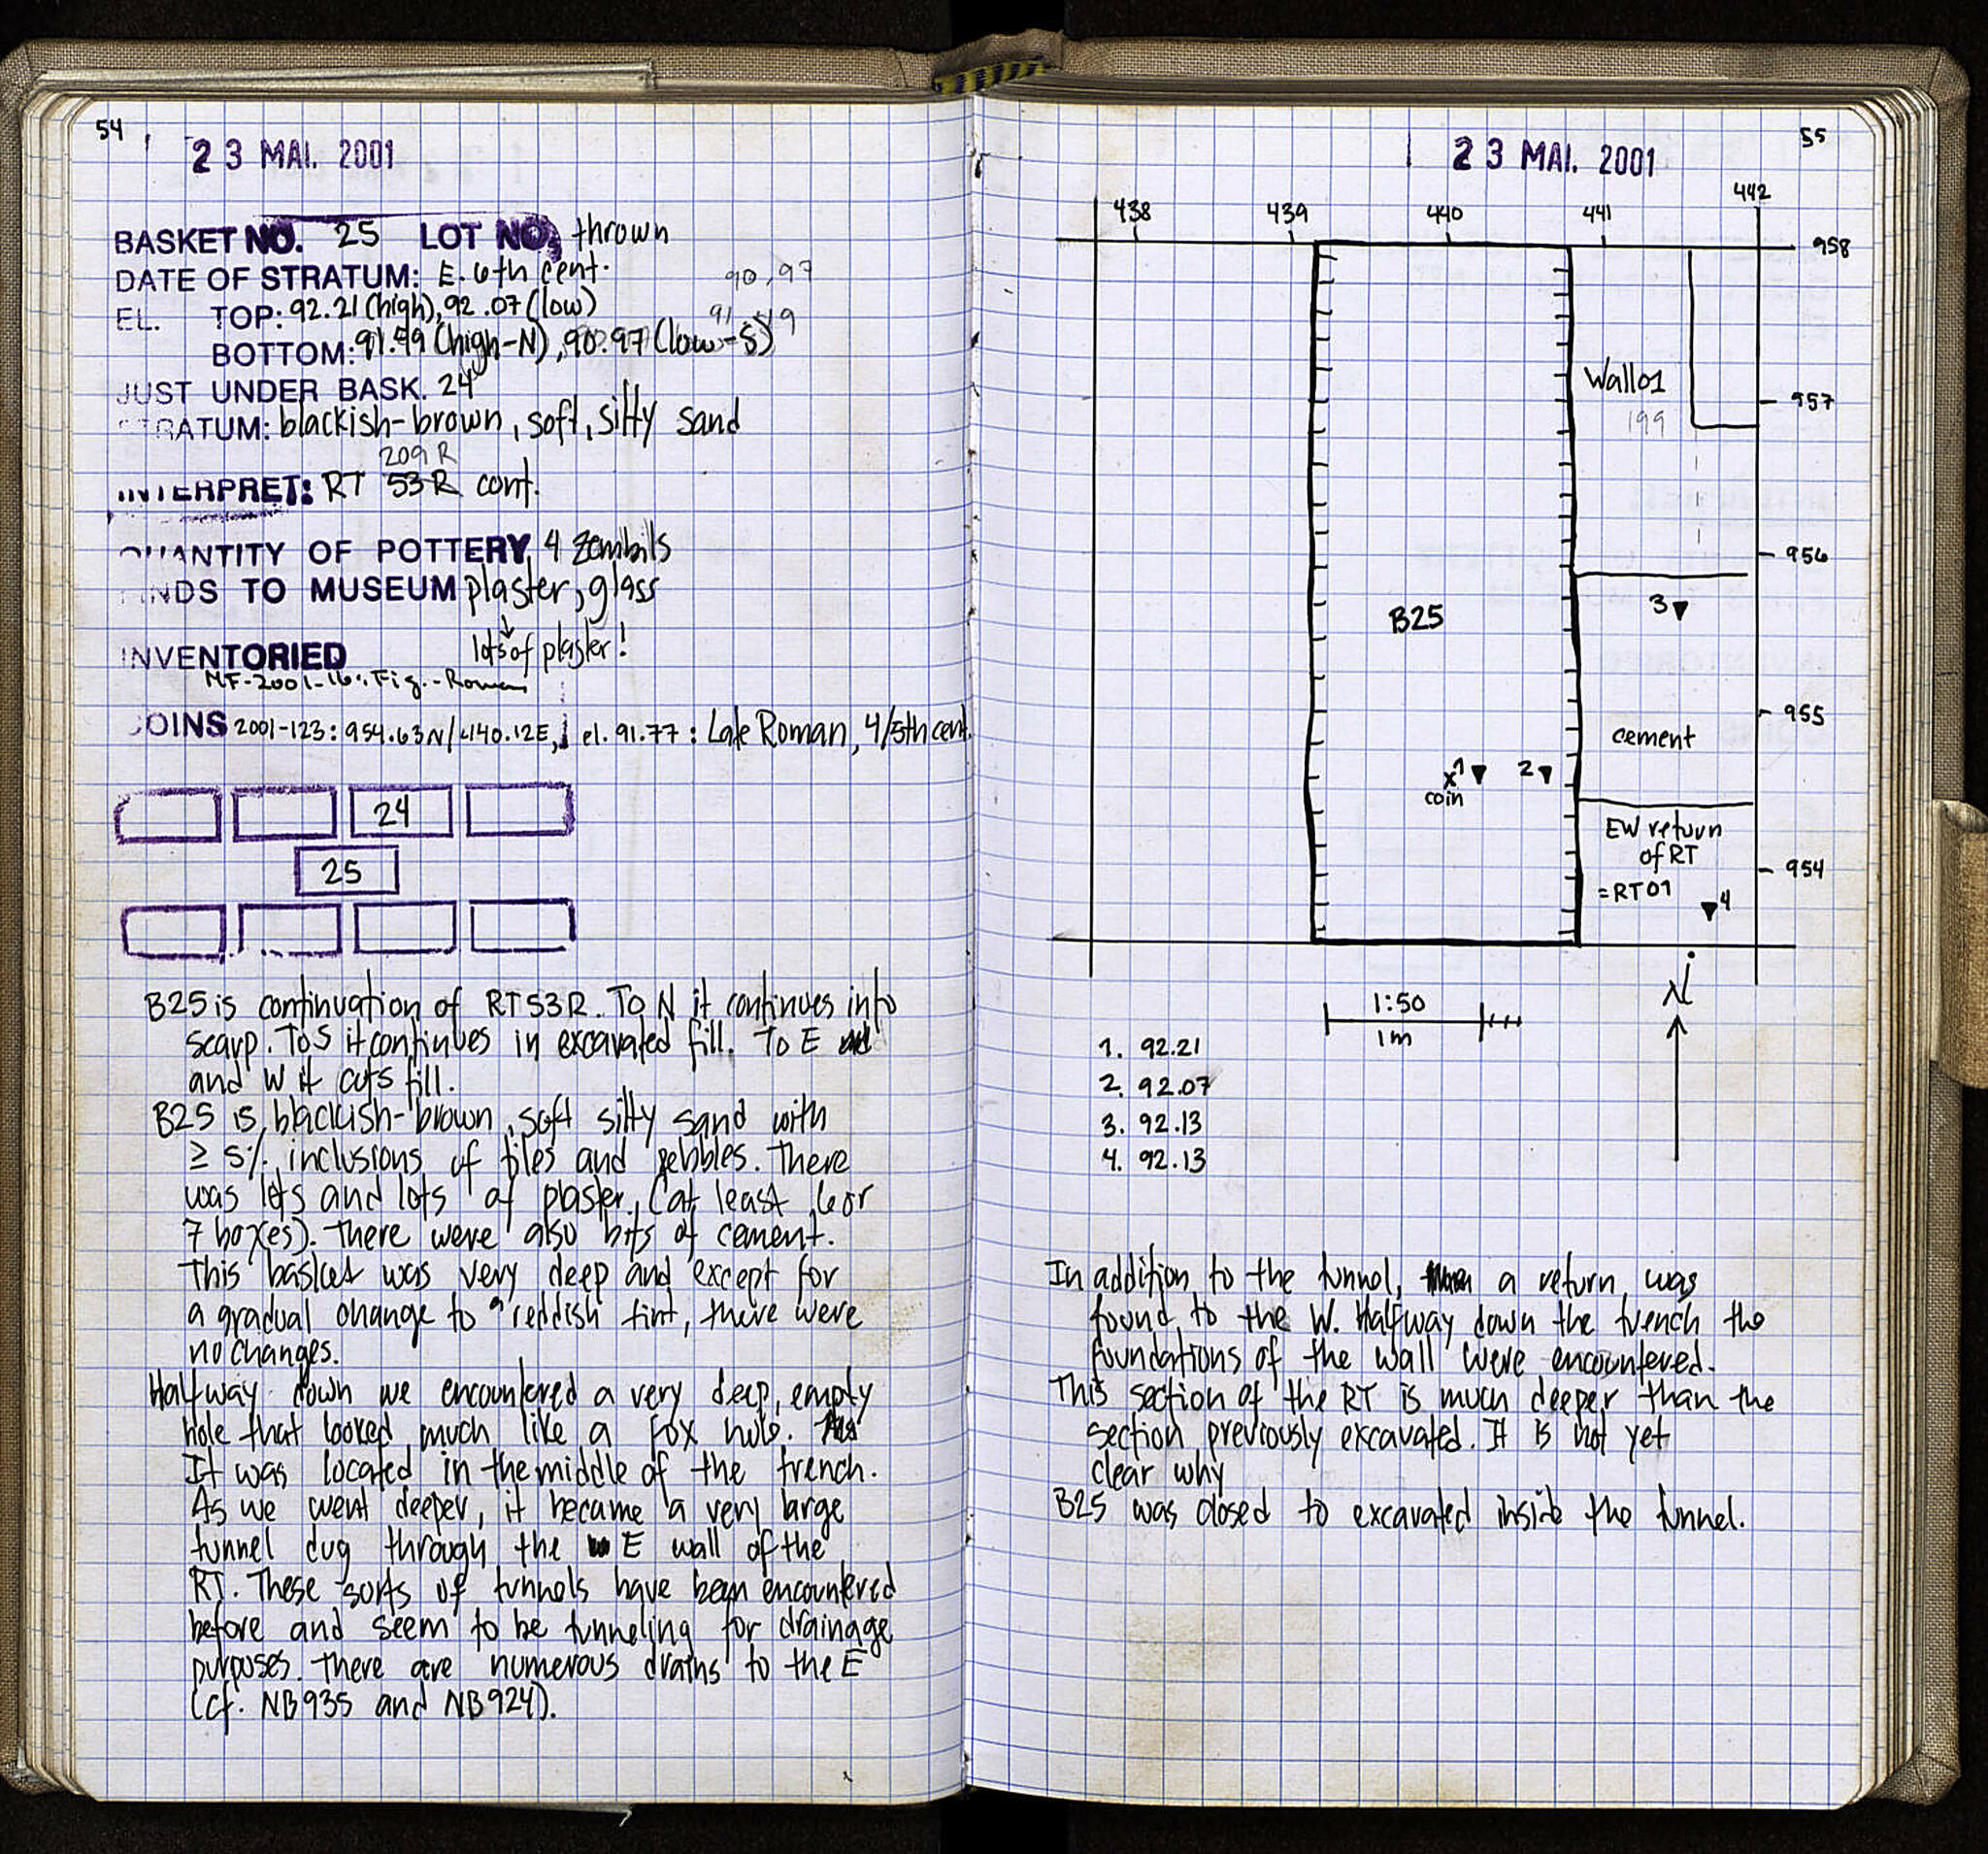 54
23 MAI. 2001
BASKET NO. 25 LOT NO. thrown
DATE OF STRATUM: E. 6th cent.
90.97
EL. TOP: 92.21 (high), 92.07 (low)
BOTTOM: (high-N), 90.97 (low-S)
JUST UNDER BASK. 24
STRATUM: blackish-brown, soft, silty sand
209 R
INTERPRET: RT 53R cont.
QUANTITY OF POTTERY 4 zembils
FINDS TO MUSEUM plaster, glass
lots of plaster!
INVENTORIED
MF-2001- Fig. - Roman
COINS 2001-123: 954.63N/440.12E, el. 91.77: Late Roman, 4/5th cent.
24
25
B25 is continuation of RT53R. To N it continues into
scarp. To S it continues in excavated fill. To E
and W it cuts fill.
B25 is blackish-brown, soft silty sand with
≥ 5% inclusions of tiles and pebbles. There
was lots and lots of plaster. (at least 6 or
7 box(es). There were also bits of cement.
This basket was very deep and except for
a gradual change to a reddish tint, there were
no changes.
Halfway down we encountered a very deep, empty
hole that looked much like a fox hole.
It was located in the middle of the trench.
As we went deeper, it became a very large
tunnel dug through the E wall of the
RT. These sorts of tunnels have been encountered
before and seem to be tunneling for drainage
purposes. There are numerous drains to the E
(cf. NB935 and NB924).
55
23 MAI. 2001
438 439 440 441 442
958
957
956
955
954
Wall 01
199
B25
3
cement
1 2
x
coin
EW return
of RT
=RT01
4
N
1:50
1m
1. 92.21
2. 92.07
3. 92.13
4. 92.13
In addition to the tunnel, a return was
found to the W. Halfway down the trench the
foundations of the wall were encountered.
This section of the RT is much deeper than the
section previously excavated. It is not yet
clear why
B25 was closed to excavated inside the tunnel.